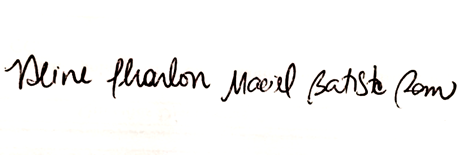 Aline Pharlon Maciel Batista